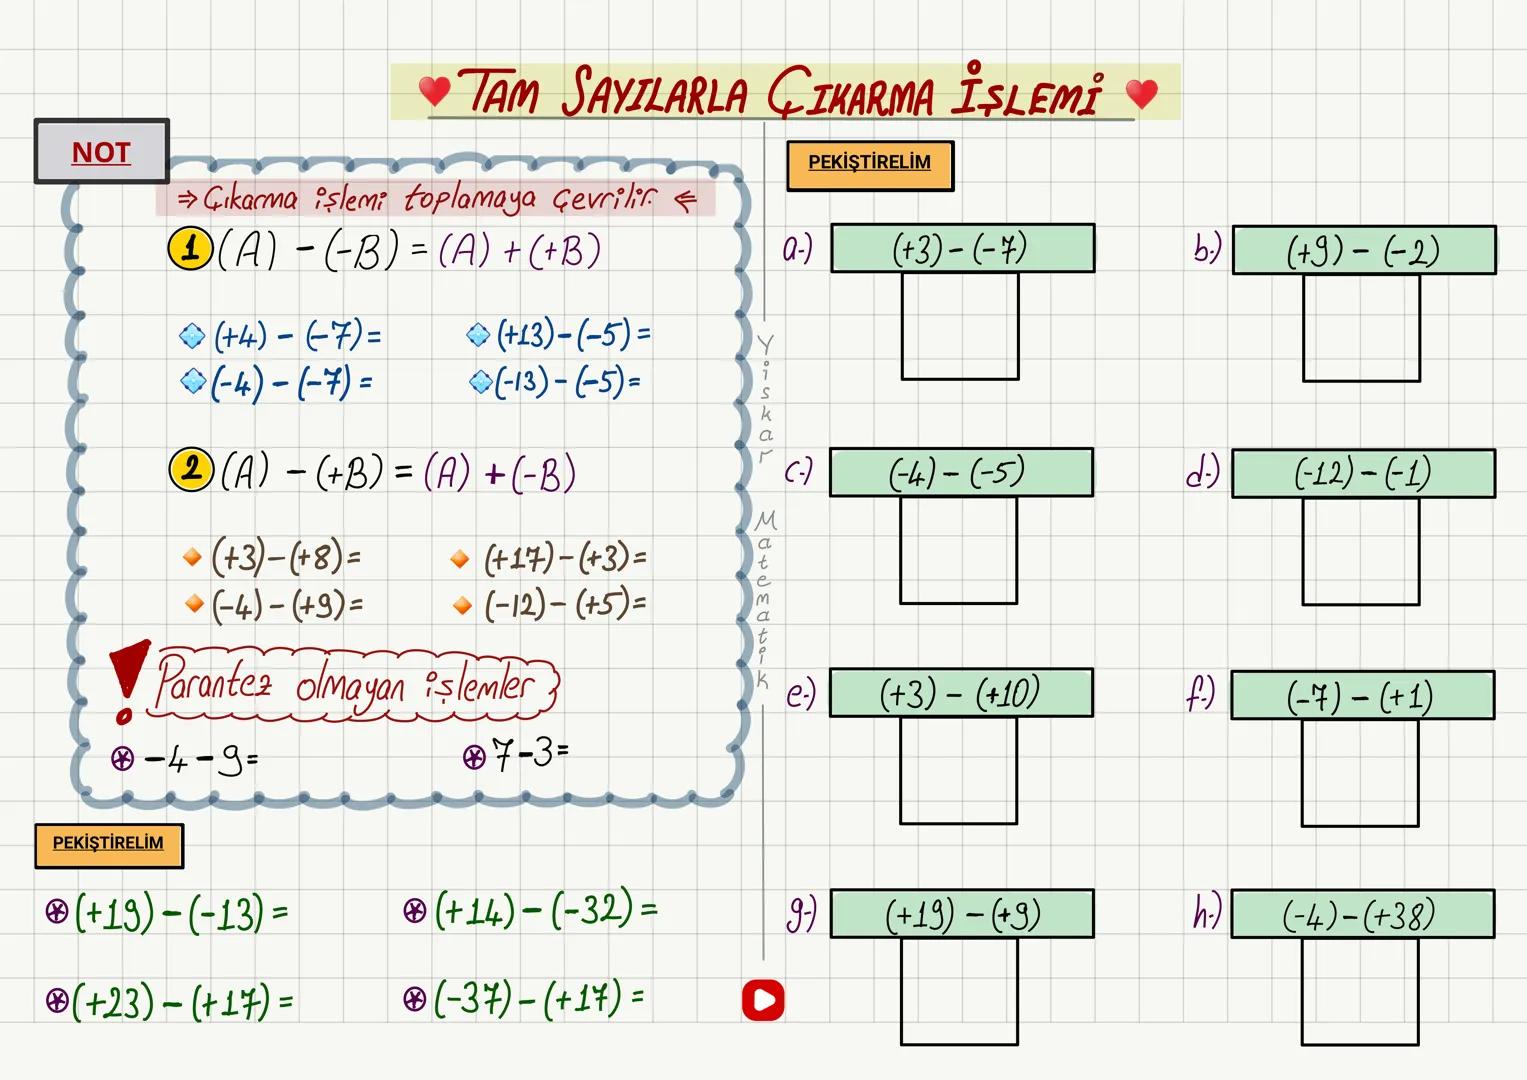 TAM SAYILARLA ÇIKARMA İŞLEMİ
NOT
⇒ Çıkarma işlemi toplamaya çevrilir. ⇐
1 (A) - (-B) = (A) + (+B)
(+4) - (-7) =
(+13) - (-5) =
(-4) - (-7) =
(-13) - (-5) =
2 (A) - (+B) = (A) + (-B)
(+3) - (+8) =
(+17) - (+3) =
(-4) - (+9) =
(-12) - (+5) =
! Parantez olmayan işlemler
-4 - 9 =
7 - 3 =
PEKİŞTİRELİM
(+19) - (-13) =
(+14) - (-32) =
(+23) - (+17) =
(-37) - (+17) =
Yiskar Matematik
PEKİŞTİRELİM
a-) (+3) - (-7)
b-) (+9) - (-2)
c-) (-4) - (-5)
d-) (-12) - (-1)
e-) (+3) - (+10)
f-) (-7) - (+1)
g-) (+19) - (+9)
h-) (-4) - (+38)